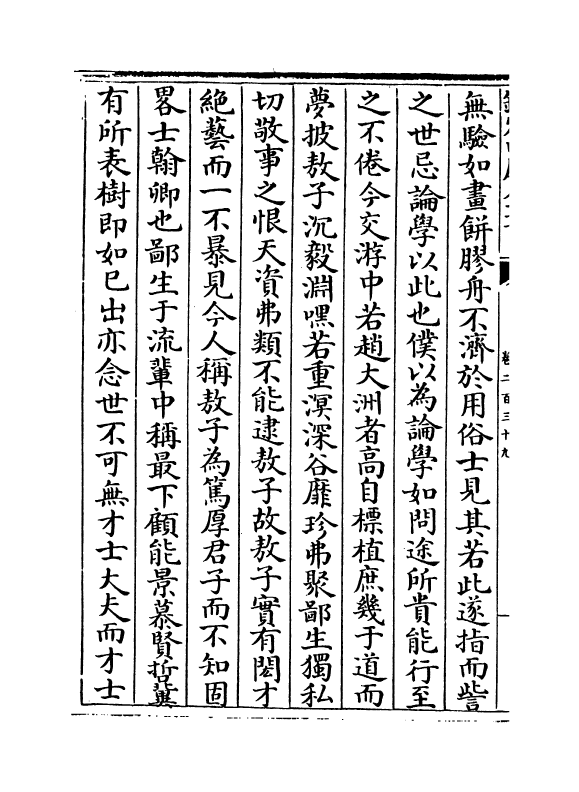 卷二百三十九
無驗如畫餅膠舟不濟於用俗士見其若此遂指而訾
之世忌論學以此也僕以為論學如問途所貴能行至
之不倦今交游中若趙大洲者高自標植庶幾于道而
夢披敖子沉毅淵嘿若重溟深谷靡珍弗聚鄙生獨私
切敬事之恨天資弗類不能逮敖子故敖子實有閎才
絕藝而一不暴見今人稱敖子為篤厚君子而不知固
畧士翰卿也鄙生于流輩中稱最下顧能景慕賢哲冀
有所表樹即如已出亦念世不可無才士大夫而才士